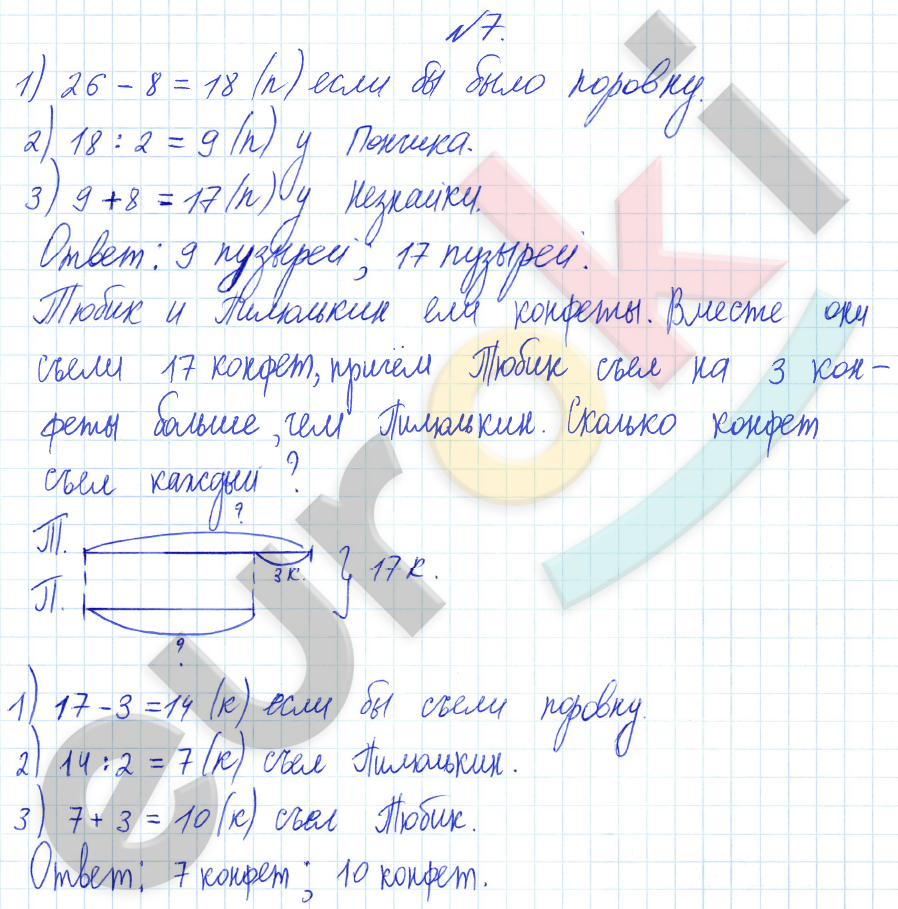 №7.
1) 26 - 8 = 18 (п) если бы было поровну.
2) 18 : 2 = 9 (п) у Пончика.
3) 9 + 8 = 17 (п) у Незнайки.
Ответ: 9 пузырей; 17 пузырей.
Тюбик и Пилюлькин ели конфеты. Вместе они
съели 17 конфет, причём Тюбик съел на 3 кон-
феты больше, чем Пилюлькин. Сколько конфет
съел каждый ?
?
Т.
3 к.
17 к.
П.
?
1) 17 - 3 = 14 (к) если бы съели поровну.
2) 14 : 2 = 7 (к) съел Пилюлькин.
3) 7 + 3 = 10 (к) съел Тюбик.
Ответ: 7 конфет; 10 конфет.
euroki